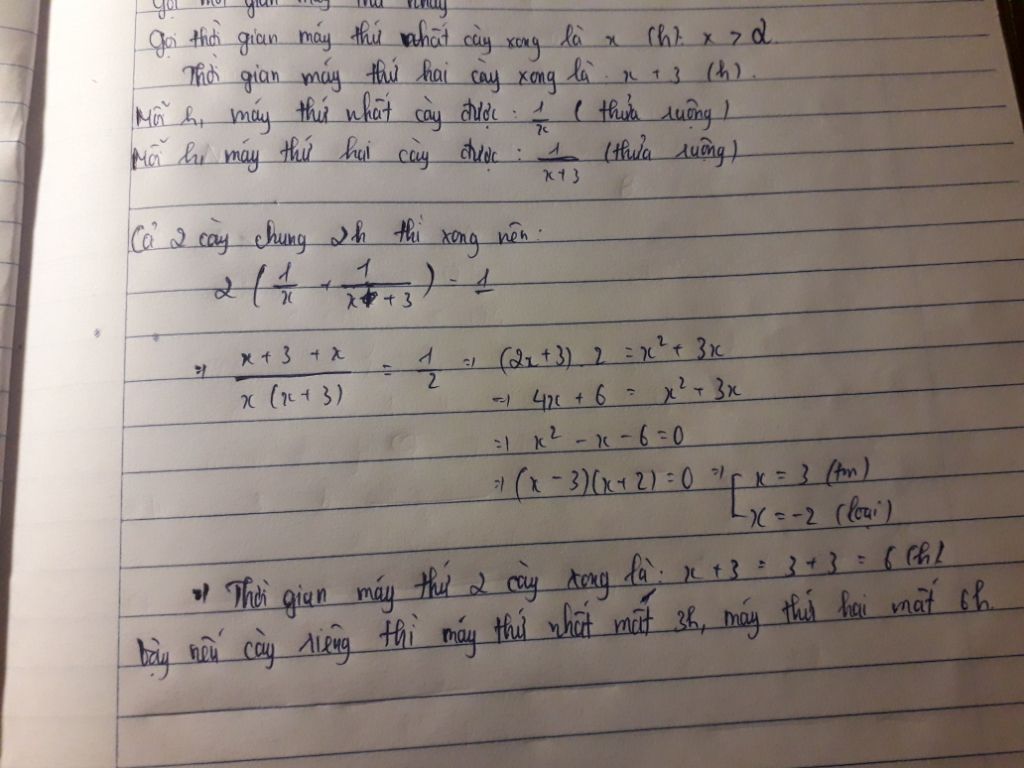 Gọi thời gian máy thứ nhất cày xong là x (h). x > 2
Thời gian máy thứ hai cày xong là x + 3 (h).
Mỗi h, máy thứ nhất cày được : 1/x ( thửa ruộng )
Mỗi h, máy thứ hai cày được : 1/(x+3) (thửa ruộng)
Cả 2 cày chung 2h thì xong nên:
2 ( 1/x + 1/(x + 3) ) = 1
=> (x + 3 + x)/(x (x + 3)) = 1/2 => (2x + 3) . 2 = x² + 3x
=> 4x + 6 = x² + 3x
=> x² - x - 6 = 0
=> (x - 3)(x + 2) = 0 => [ x = 3 (tm)
x = -2 (loại)
=> Thời gian máy thứ 2 cày xong là: x + 3 = 3 + 3 = 6 (h)
Vậy nếu cày riêng thì máy thứ nhất mất 3h, máy thứ hai mất 6h.